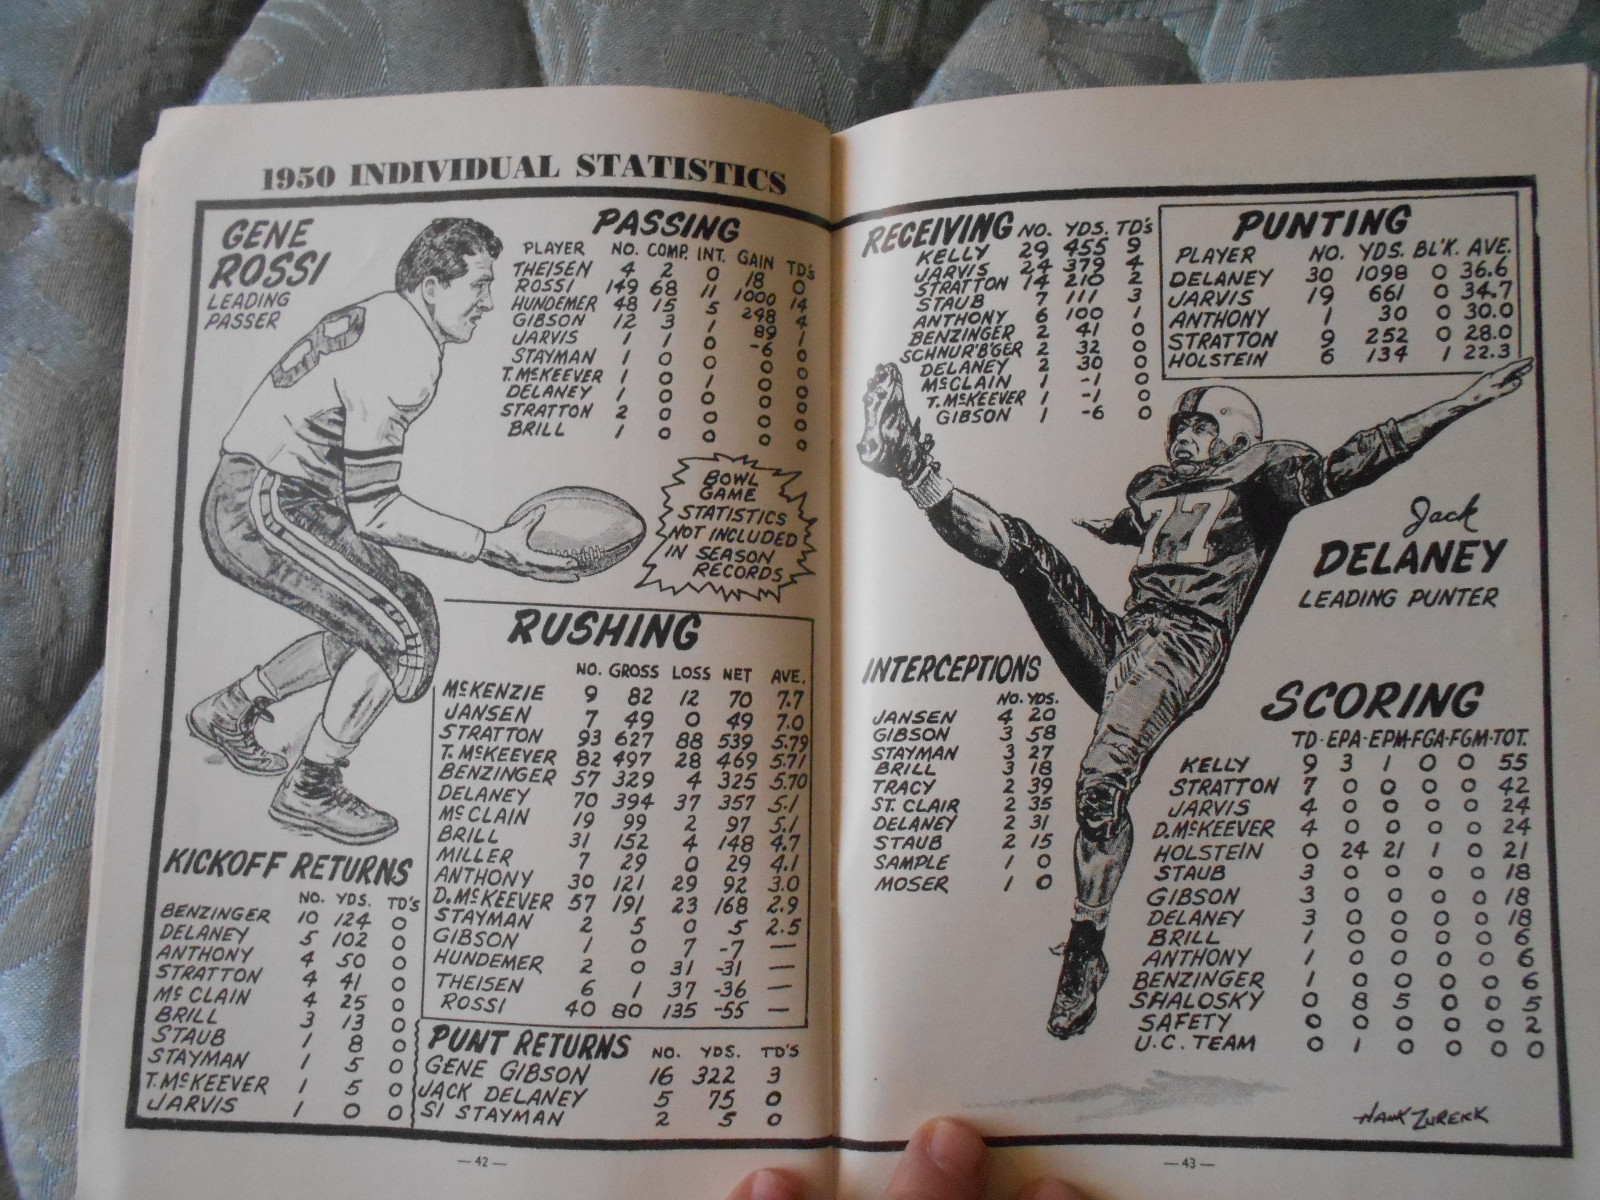 1950 INDIVIDUAL STATISTICS
GENE
ROSSI
LEADING
PASSER
PASSING
PLAYER NO. COMP. INT. GAIN TD'S
THEISEN 4 2 0 18 0
ROSSI 149 68 11 1000 14
HUNDEMER 48 15 5 298 4
GIBSON 12 3 1 89 1
JARVIS 1 1 0 -6 0
STAYMAN 1 0 0 0 0
T. McKEEVER 1 0 1 0 0
DELANEY 1 0 0 0 0
STRATTON 2 0 0 0 0
BRILL 1 0 0 0 0
BOWL
GAME
STATISTICS
NOT INCLUDED
IN SEASON
RECORDS
RUSHING
NO. GROSS LOSS NET AVE.
McKENZIE 9 82 12 70 7.7
JANSEN 7 49 0 49 7.0
STRATTON 93 627 88 539 5.79
T. McKEEVER 82 497 28 469 5.71
BENZINGER 57 329 4 325 5.70
DELANEY 70 394 37 357 5.1
McCLAIN 19 99 2 97 5.1
BRILL 31 152 4 148 4.7
MILLER 7 29 0 29 4.1
ANTHONY 30 121 29 92 3.0
D. McKEEVER 57 191 23 168 2.9
STAYMAN 2 5 0 5 2.5
GIBSON 1 0 7 -7 —
HUNDEMER 2 0 31 -31 —
THEISEN 6 1 37 -36 —
ROSSI 40 80 135 -55 —
KICKOFF RETURNS
NO. YDS. TD'S
BENZINGER 10 124 0
DELANEY 5 102 0
ANTHONY 4 50 0
STRATTON 4 41 0
McCLAIN 4 25 0
BRILL 3 13 0
STAUB 1 8 0
STAYMAN 1 5 0
T. McKEEVER 1 5 0
JARVIS 1 0 0
PUNT RETURNS NO. YDS. TD'S
GENE GIBSON 16 322 3
JACK DELANEY 5 75 0
SI STAYMAN 2 5 0
— 42 —
RECEIVING NO. YDS. TD's
KELLY 29 455 9
JARVIS 24 379 4
STRATTON 14 210 2
STAUB 7 111 3
ANTHONY 6 100 1
BENZINGER 2 41 0
SCHNUR'B'GER 2 32 0
DELANEY 2 30 0
McCLAIN 1 -1 0
T. McKEEVER 1 -1 0
GIBSON 1 -6 0
PUNTING
PLAYER NO. YDS. BL'K. AVE.
DELANEY 30 1098 0 36.6
JARVIS 19 661 0 34.7
ANTHONY 1 30 0 30.0
STRATTON 9 252 0 28.0
HOLSTEIN 6 134 1 22.3
77
Jack
DELANEY
LEADING PUNTER
INTERCEPTIONS
NO. YDS.
JANSEN 4 20
GIBSON 3 58
STAYMAN 3 27
BRILL 3 18
TRACY 2 39
ST. CLAIR 2 35
DELANEY 2 31
STAUB 2 15
SAMPLE 1 0
MOSER 1 0
SCORING
TD-EPA-EPM-FGA-FGM-TOT.
KELLY 9 3 1 0 0 55
STRATTON 7 0 0 0 0 42
JARVIS 4 0 0 0 0 24
D. McKEEVER 4 0 0 0 0 24
HOLSTEIN 0 24 21 1 0 21
STAUB 3 0 0 0 0 18
GIBSON 3 0 0 0 0 18
DELANEY 3 0 0 0 0 18
BRILL 1 0 0 0 0 6
ANTHONY 1 0 0 0 0 6
BENZINGER 1 0 0 0 0 6
SHALOSKY 0 8 5 0 0 5
SAFETY 0 0 0 0 0 2
U.C. TEAM 0 1 0 0 0 0
HANK ZUREKK
— 43 —